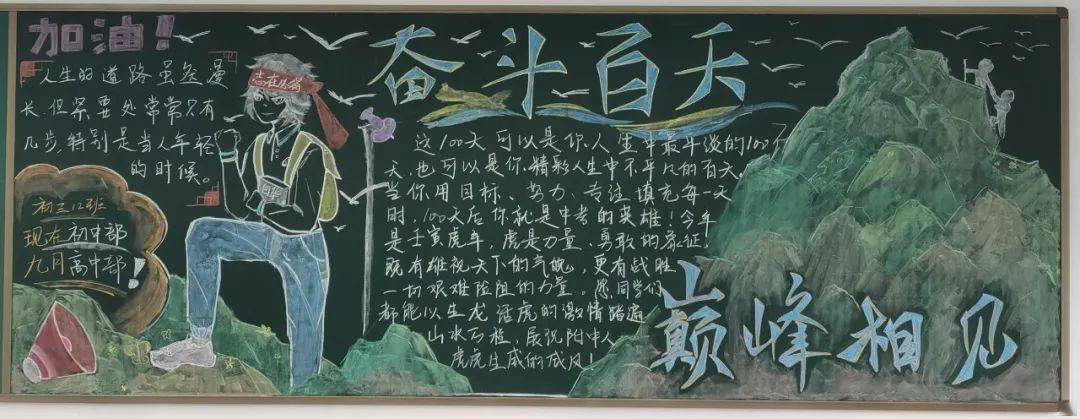 加油!
人生的道路虽然漫
长,但紧要处常常只有
几步,特别是当人年轻
的时候。
初三12班
现在初中部
九月高中部!
志在必得
奋斗百天
这100天可以是你人生中最平淡的100个
天,也可以是你精彩人生中不平凡的百天。
当你用目标、努力、专注填充每一天
时,100天后你就是中考的英雄!今年
是壬寅虎年,虎是力量、勇敢的象征,
既有雄视天下的气魄,更有战胜
一切艰难险阻的力量。愿同学们
都能以生龙活虎的激情踏遍
山水万程,展现附中人
虎虎生威的风!
巅峰相见